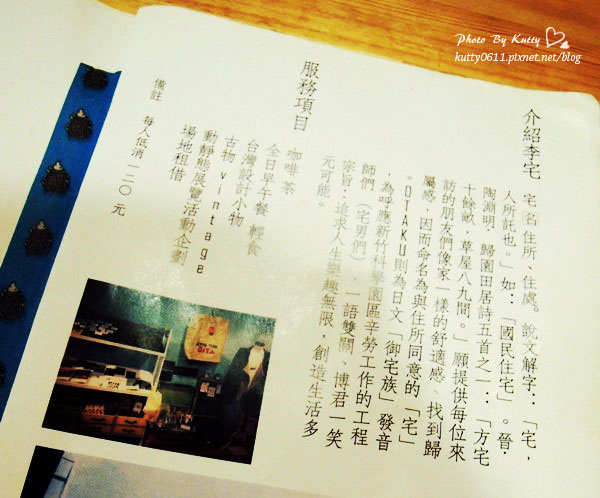 Photo By Kutty
kutty0611.pixnet.net/blog
介紹李宅
宅(名)住所、住處。說文解字:「宅,
人所託也。」如:「國民住宅」。晉.
陶淵明.歸園田居詩五首之一:「方宅
十餘畝,草屋八九間。」願提供每位來
訪的朋友們像家一樣的舒適感、找到歸
屬感,因而命名為與住所同意的「宅」
。OTAKU則為日文「御宅族」發音
,為呼應新竹科學園區辛勞工作的工程
師們(宅男們),一語雙關,博君一笑
宗旨:追求人生樂趣無限,創造生活多
元可能。
服務項目
咖啡 茶
全日早午餐 輕食
台灣設計小物
古物vintage
動靜態展覽活動企劃
場地租借
備註 每人低消一二〇元